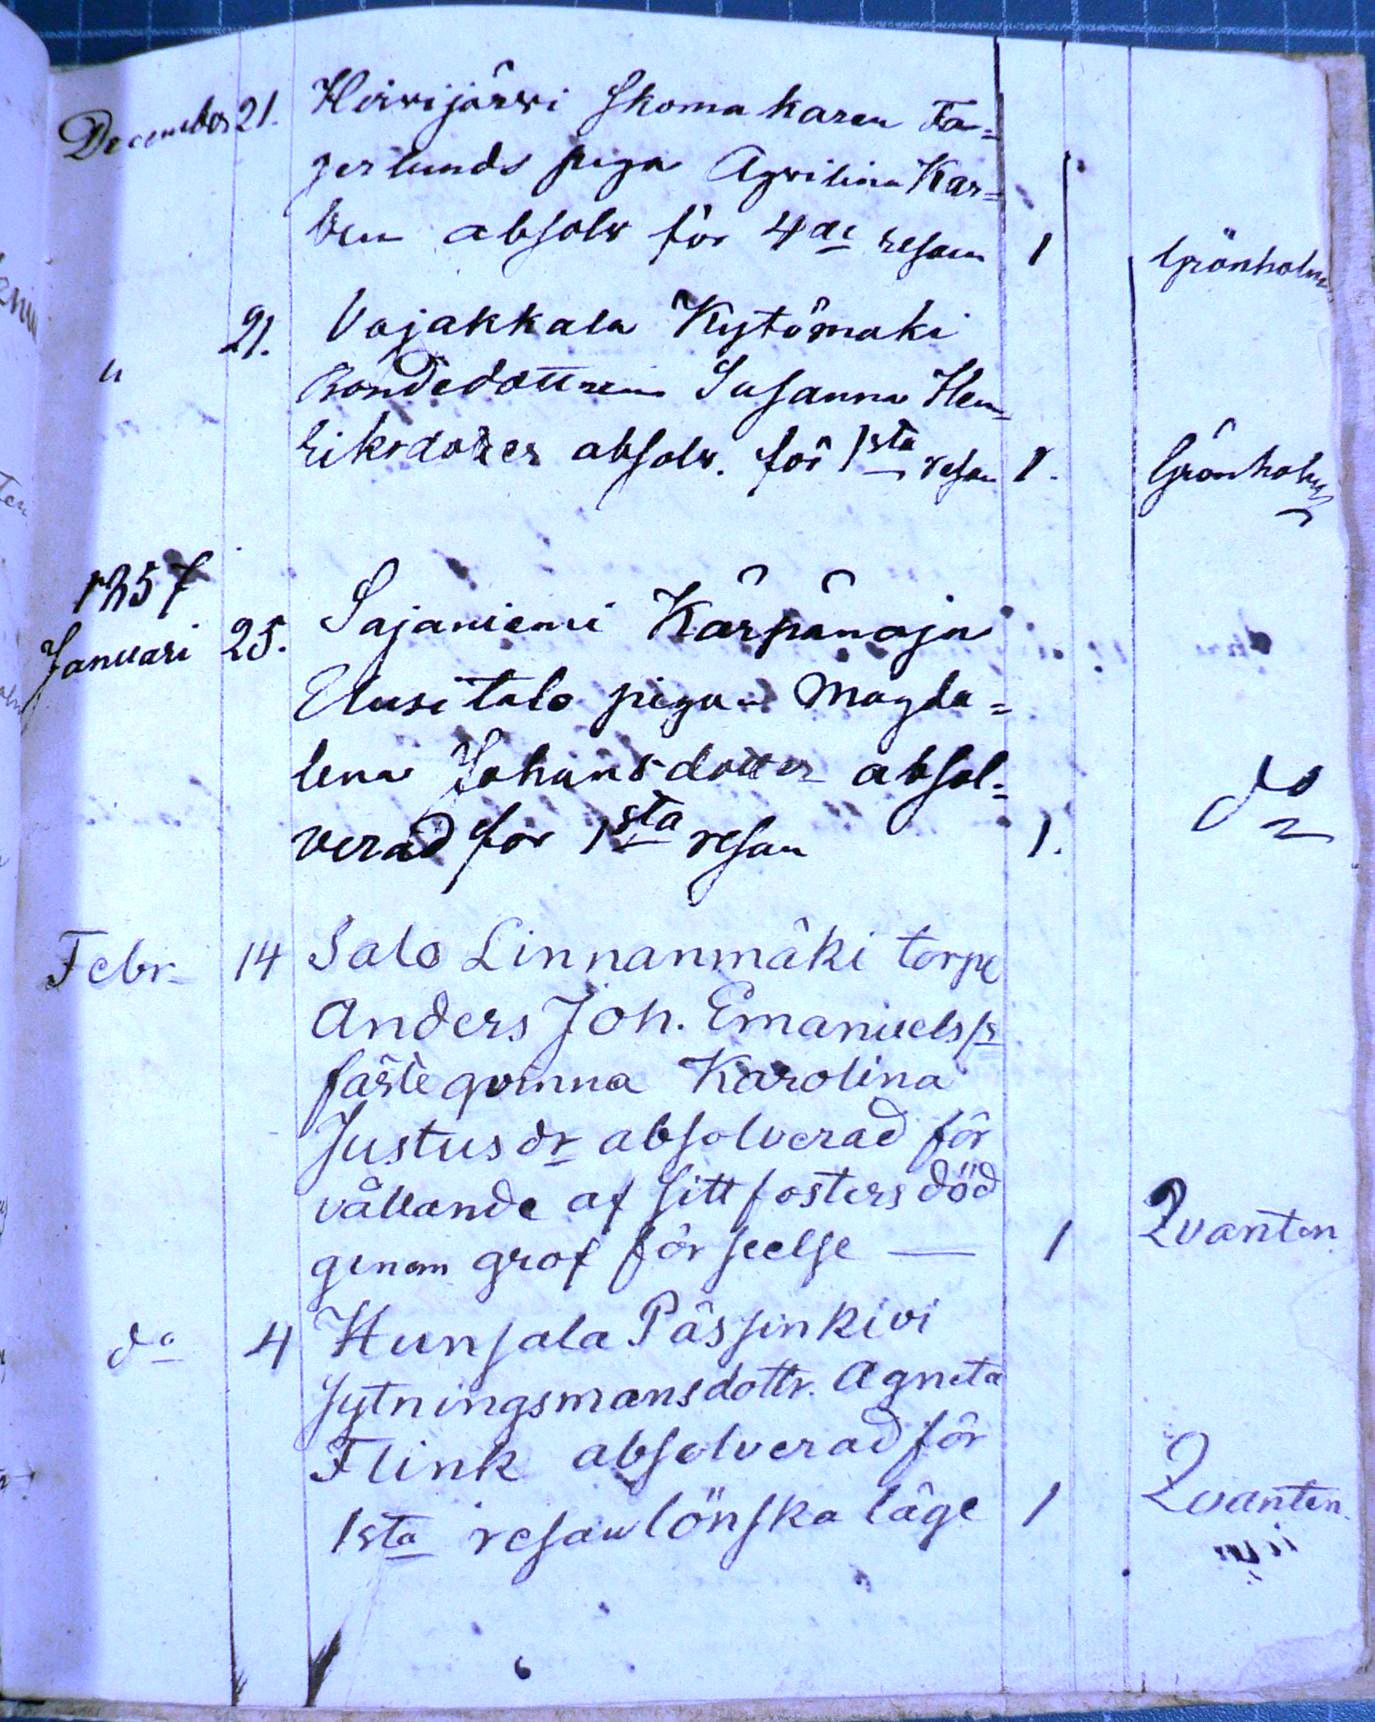 December 21. Hirvijärvi skomakaren Fa=
gerlunds piga Agvilina Kar=
absolv för 4de resan 1 Grönholm
" 21. Vojakkala Kytömäki
Bondedottren Susanna Hen=
riksdotter absolv. för 1sta resan 1. Grönholm
1857
Januari 25. Sajaniemi Kärpänoja
Uusitalo pigan Magda=
lena Johansdotter absol=
verad för 1sta resan 1. do
Febr. 14 Salo Linnanmäki torp
Anders Joh. Emanuelss
fästeqvinna Karolina
Justusdr absolverad för
vållande af sitt fosters död
genom grof förseelse — 1 Qvanten
do 4 Hunsala Pässinkivi
sytningsmansdottr. Agneta
Flink absolverad för
1sta resan lönska läge 1 Qvanten.